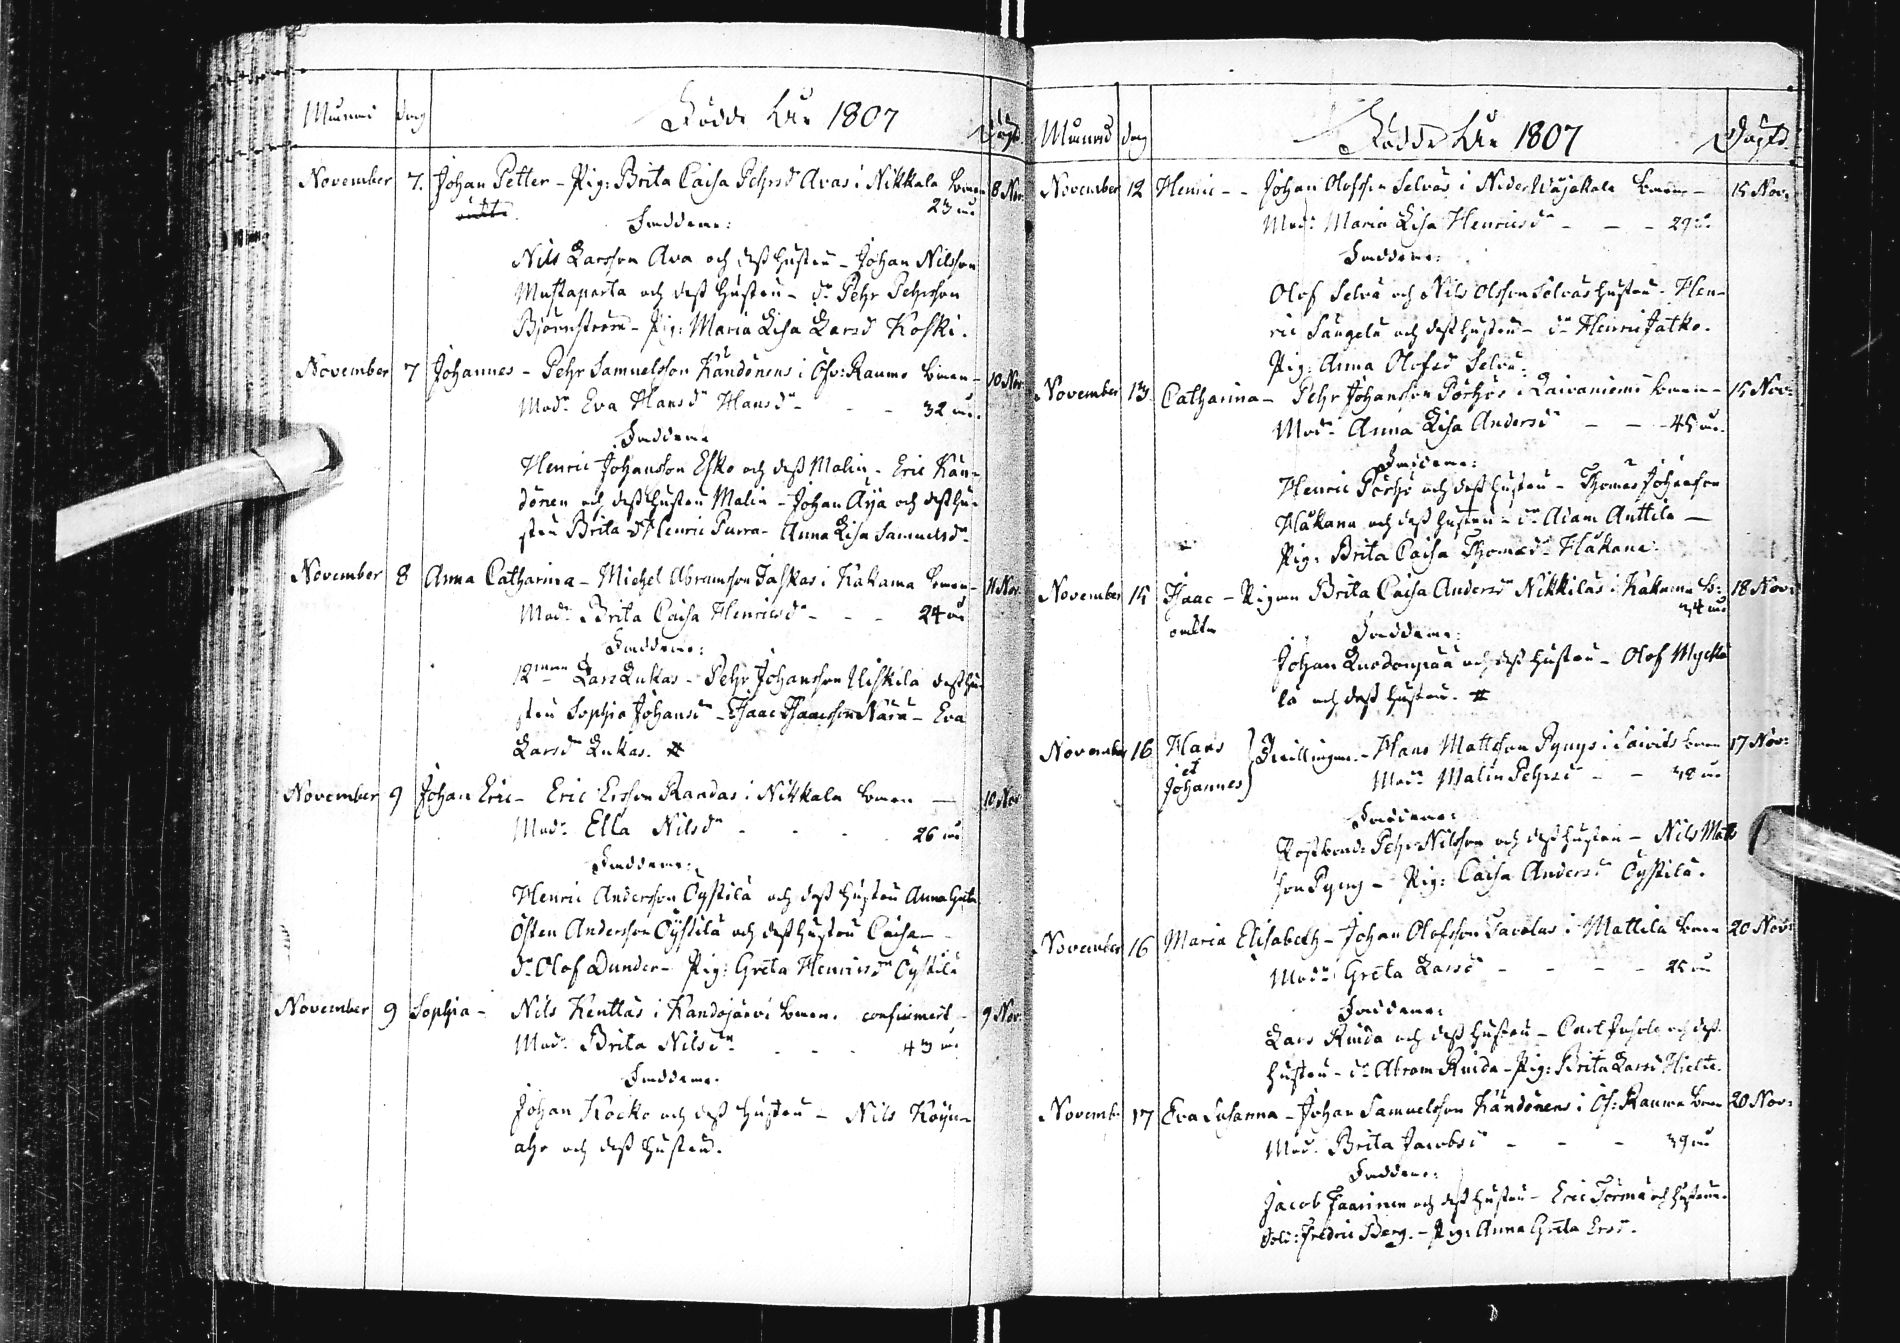 Månad dag Födde År 1807 Döpt
November 7. Johan Petter - Pig: Brita Caisa Pehrsdr Avas i Nikkala boren 8 Nov:
oächta 23 år
Faddrene:
Nils Larsson Ava och dess hustru - Johan Nilsson
Mustaparta och dess hustru - dr Pehr Pehrsson
Björnström - Pig: Maria Lisa Larsdr Koski.
November 7 Johannes - Pehr Samuelsson Kändönens i Öfv: Raumo boren - 10 Nov:
Modr Eva Hansdr Hansdr - - - 32 år.
Faddrene
Henric Johansson Esko och dess Malin - Eric Kän-
dönen och dess hustru Malin - Johan Äijä och dess hu-
stru Brita - dr Henric Purra - Anna Lisa Samuelsdr
November 8 Anna Catharina - Michel Abramsson Taskas i Kakama boren - 11 Nov:
Modr Brita Caisa Henricsdr - - - 24 år
Faddrene:
12man Lars Lukas - Pehr Johansson Uiskila dess hu-
stru Sophia Johansdr - Isaac Isaacsson Närä - Eva
Larsdr Lukas. #
November 9 Johan Eric - Eric Ersson Raudas i Nikkala boren - 10 Nov
Modr Ella Nilsdr - - - 26 år
Faddrene:
Henric Andersson Öystilä och dess hustru Anna Greta
Östen Andersson Öystilä och dess hustru Caisa -
dr Olof Dunder - Pig: Greta Henricsdr Öystilä
November 9 Sophia - Nils Kenttäs i Kandojärvi boren. confirmert - 9 Nov:
Modr Brita Nilsdr - - - 43 år
Faddrene.
Johan Kocko och dess hustru - Nils Köyn-
ahr och dess hustru.
Månad dag Födde År 1807 Döpts
November 12 Henric - - Johan Olofsson Selväs i Neder Wojakala boren - 15 Nov:
Modr Maria Lisa Henricsdr - - - 29 år
Faddrene:
Olof Selvä och Nils Olofsson Selväs hustru - Hen-
ric Saugelä och dess hustru - dr Henric Jatko.
Pig: Anna Olofsdr Selvä.
November 13 Catharina - Pehr Johansson Pörhös i Laivaniemi boren - 15 Nov:
Modr Anna Lisa Andersdr - - - 45 år.
Faddrene:
Henric Pörhö och dess hustru - Thomas Johansson
Hakana och dess hustru - dr Adam Anttila -
Pig: Brita Caisa Thomasdr Hakana.
November 15 Isaac - Pigan Brita Caisa Andersdr Nikkiläs i Kakama b: 18 Nov:
oäckta 34 år
Faddrene:
Johan Luodonpää och dess hustru - Olof Myckä-
lä och dess hustru. #
November 16 Hans Tvillingar. - Hans Mattsson Pynys i Saivits boren 17 Nov:
et Modr Malin Pehrsdr - - 38 år
Johannes
Faddrene:
Rustbond: Pehr Nilsson och dess hustru - Nils Mats
son Pyny - Pig: Caisa Andersdr Öystilä.
November 16 Maria Elisabeth - Johan Olofsson Saoolas i Mattila boren 20 Nov:
Modr Greta Larsdr - - - - 25 år
Faddrene:
Lars Ruida och dess hustru - Carl Juhola och dess
hustru - dr Abram Ruida - Pig: Brita Larsdr Hietta.
November 17 Eva Susanna - Johan Samuelsson Kändönens i Öf: Raumo boren 20 Nov:
Modr Brita Jacobsdr - - - 39 år
Faddrene:
Jacob Jaarinen och dess hustru - Eric Törmä och hustrun.
Sold: Fredric Berg. - Pig: Anna Greta Ersdr.